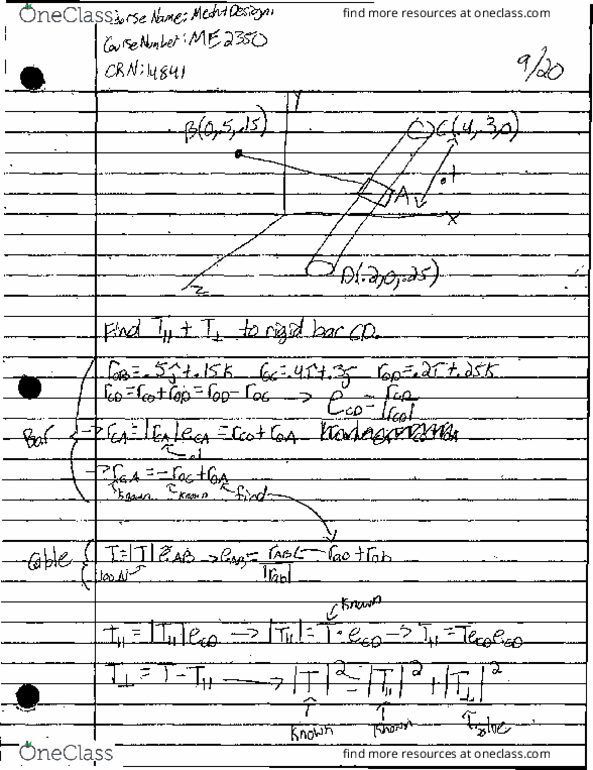 OneClass
find more resources at oneclass.com
Course Name: Mech+Design
Course Number: ME 2350
CRN: 14841
9/20
Y
B(0,.5,.15)
C(.4,.3,0)
A
.1
X
Z
D(.2,0,.25)
Find T∥ + T⊥ to rigid bar CD.
Bar
rOB = .5j + .15k rOC = .4i + .3j rOD = .2i + .25k
rCD = rCO + rOD = rOD - rOC → eCD = rCD / |rCD|
→ rCA = |rCA| eCA = rCO + rOA
.1
→ rCA = -rOC + rOA
known known find
Cable
T = |T| eAB → eAB = rAB / |rAB| rAO + rOB
100N
known
T∥ = |T∥| eCD → |T∥| = T · eCD → T∥ = T eCD eCD
T⊥ = T - T∥ → |T|² = |T∥|² + |T⊥|²
known known solve
OneClass
find more resources at oneclass.com